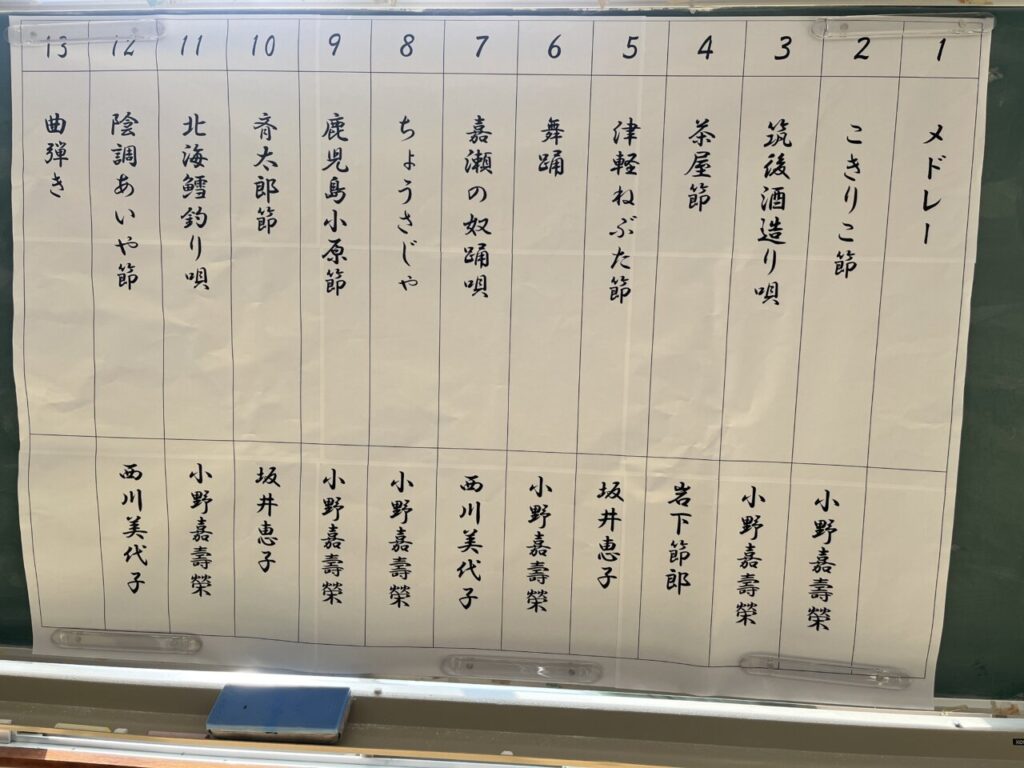 1
メドレー
2
こきりこ節
小野嘉壽榮
3
筑後酒造り唄
小野嘉壽榮
4
茶屋節
岩下節郎
5
津軽ねぶた節
坂井恵子
6
舞踊
小野嘉壽榮
7
嘉瀬の奴踊唄
西川美代子
8
ちょうさじゃ
小野嘉壽榮
9
鹿児島小原節
小野嘉壽榮
10
斉太郎節
坂井恵子
11
北海鱈釣り唄
小野嘉壽榮
12
陰調あいや節
西川美代子
13
曲弾き